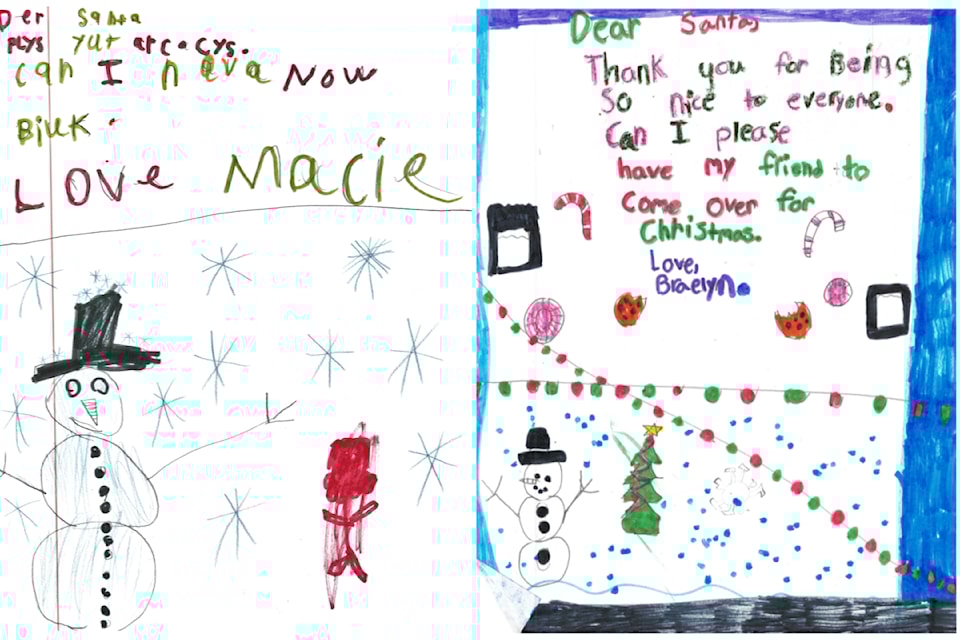 Der Santa
PLYS yur arc.cys.
can I n eva Now
Biuk.
Love Macie
Dear Santa,
Thank you for Being
So nice to everyone.
Can I please
have my friend to
Come over for
Christmas.
Love,
Braelyn.